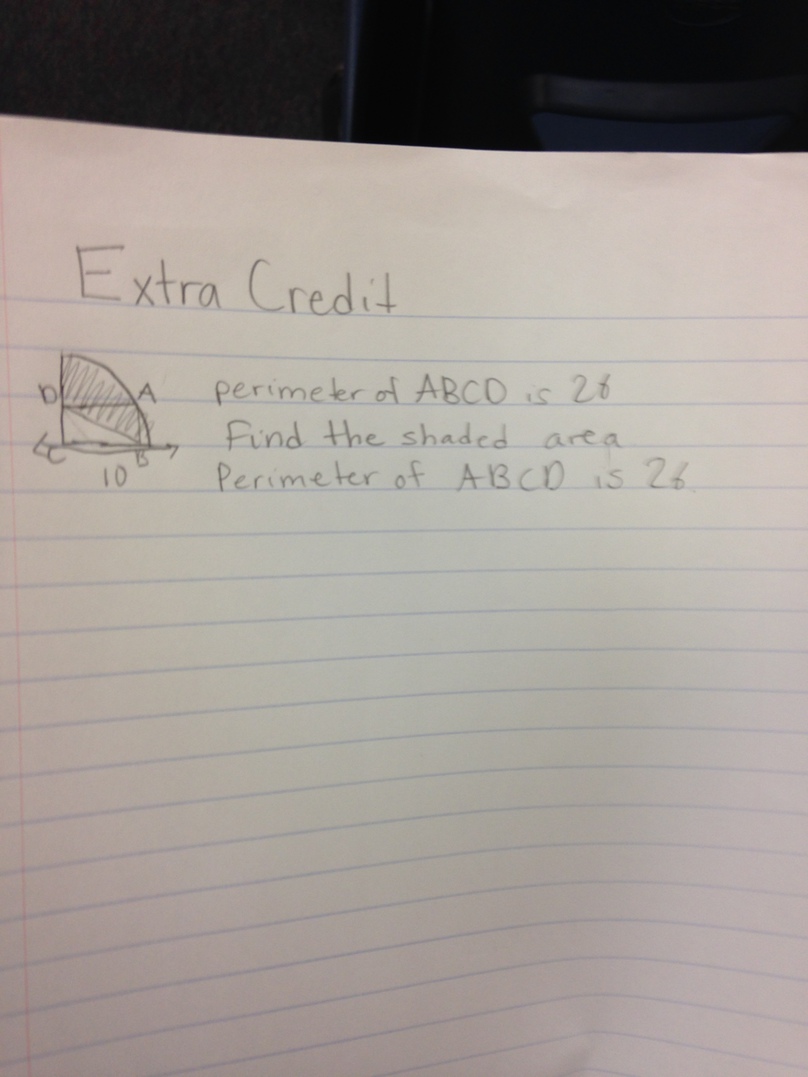 Extra Credit
D A perimeter of ABCD is 28
C B Find the shaded area
10 Perimeter of ABCD is 28